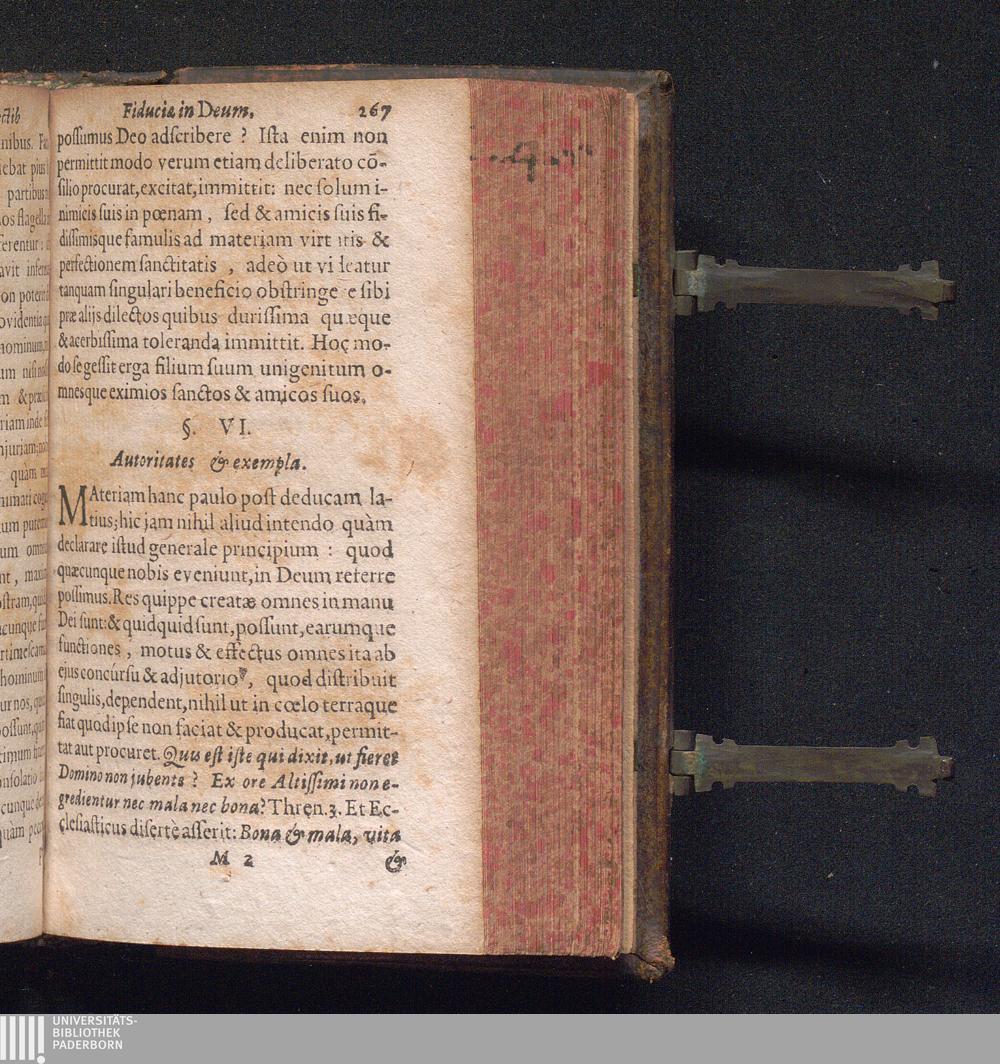 Fiducia in Deum. 267
possumus Deo adscribere ? Ista enim non
permittit modo verum etiam deliberato cō-
silio procurat, excitat, immittit: nec solum i-
nimicis suis in pœnam , sed & amicis suis fi-
dissimisque famulis ad materiam virt tis &
perfectionem sanctitatis , adeò ut vi eatur
tanquam singulari beneficio obstringe e sibi
præ alijs dilectos quibus durissima quæque
& acerbissima toleranda immittit. Hoc mo-
do se gessit erga filium suum unigenitum o-
mnesque eximios sanctos & amicos suos.
§. VI.
Autoritates & exempla.
MAteriam hanc paulo post deducam la-
tius; hic jam nihil aliud intendo quàm
declarare istud generale principium : quod
quæcunque nobis eveniunt, in Deum referre
possimus. Res quippe creatæ omnes in manu
Dei sunt: & quidquid sunt, possunt, earumque
functiones , motus & effectus omnes ita ab
ejus concúrsu & adjutorio , quod distribuit
singulis, dependent, nihil ut in cœlo terraque
fiat quod ipse non faciat & producat, permit-
tat aut procuret. Quis est iste qui dixit, ut fieret
Domino non jubente ? Ex ore Altissimi non e-
gredientur nec mala nec bona? Thren. 3. Et Ec-
clesiasticus disertè asserit: Bona & mala, vita
M 2 &
ectib
nibus.
iebat pius
partibus
os flagella
ferentur :
avit
on
ovidentia
hominum
um nisi
m &
riam inde
njuriam:
quàm
nimati
um
um
nt ,
ostram,
acunque
hominum
ur nos,
possunt,
ximum
nsolatio
cunque
quàm
UNIVERSITÄTS-
BIBLIOTHEK
PADERBORN